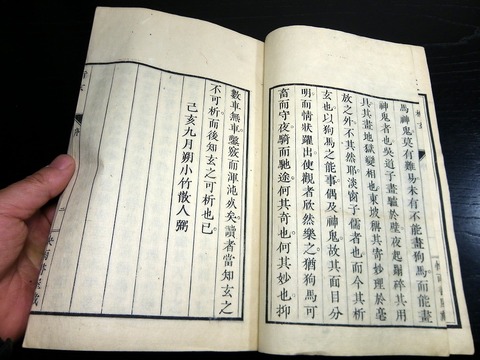 馬神鬼莫有難易未有不能畫狗馬而能畫
神鬼者也吳道子畫驢於壁夜起蹋碎其用
具其畫地獄變相也東坡稱其寄妙理於毫
放之外不其然耶淡窗子儒者也而今其析
玄也以狗馬之能事偶及神鬼故其面目分
明而情狀躍出使觀者欣然樂之猶狗馬可
畜而守夜騎而馳途何其奇也何其妙也抑
數車無車鑿竅而渾沌死矣讀者當知玄之
不可析而後知玄之可析也已
己亥九月朔小竹散人弼
序